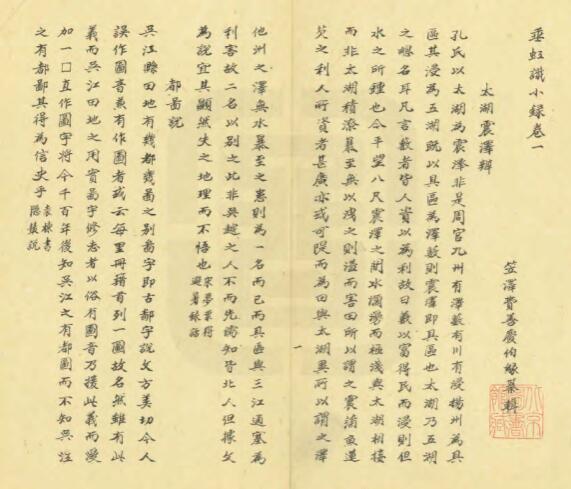 垂虹識小錄卷一
笠澤費善慶伯緣纂輯
太湖震澤辨
孔氏以太湖為震澤非是周官九州有澤藪有川有浸揚州為具
區其浸為五湖既以具區為澤藪則震澤即具區也太湖乃五湖
之總名耳凡言藪者皆人資以為利故曰藪以富得民而浸則但
水之所鍾也今平望八尺震澤之間水瀰漫而極淺與太湖相接
而非太湖積潦暴至無以洩之則溢而害田所以謂之震蒲魚蓮
芡之利人所資者甚廣亦或可隄而為田與太湖異所以謂之澤
他州之澤無水暴至之患則為一名而已而具區與三江通塞為
利害故二名以別之此非吳越之人不而先儒知皆北人但據文
為說宜其顯然失之地理而不悟也宋葉夢得避暑錄話
都啚說
吳江縣田地有幾都幾啚之別啚字即古鄙字說文方美切今人
誤作圖音兼有作圖者或云每里冊籍首列一圖故名然雖有此
義而吳江田地之用實啚字修志者以俗有圖音乃援此義而漫
加一口直作圖字將令千百年後知吳江之有都圖而不知吳江
之有都鄙其得為信史乎袁棟書隱叢說